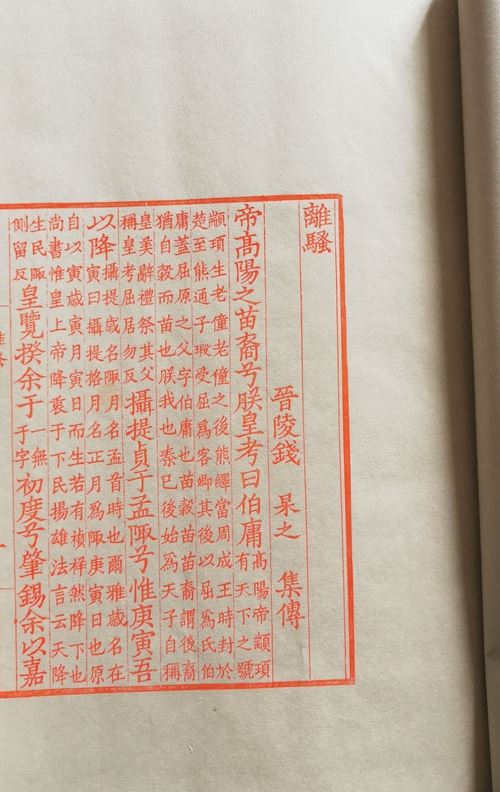 離騷
晉陵錢 杲之 集傳
帝高陽之苗裔兮朕皇考曰伯庸高陽帝顓頊有天下之號
顓頊生老僮老僮之後熊繹當周成王時封於
楚至熊通子瑕受屈爲客卿其後以屈爲氏伯
庸蓋屈原之父字伯庸也苗穀苗苗裔謂後裔
猶自穀而苗也朕我也秦已後始爲天子自稱
皇美辭禮祭其父稱皇考屈居勿反攝提貞于孟陬兮惟庚寅吾
以降攝提歲名陬月名孟音時也爾雅歲名在寅曰攝提格月名正月爲陬庚寅日也原
自以寅歲寅月寅日而生若有禎祥然降下也
尚書惟皇上帝降衷于下民揚雄法言云天降
生民陬側留反皇覽揆余于一無于字初度兮肇錫余以嘉